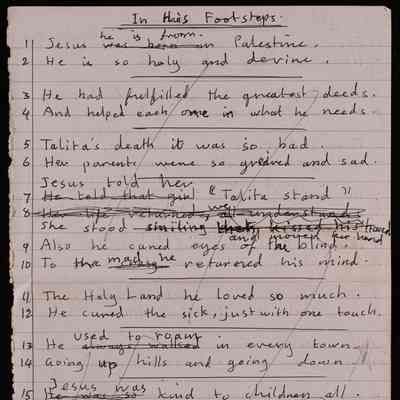 In His Footsteps.
he is from
1 Jesus was born in Palestine.
2 He is so holy and devine.
3 He had fullfilled the greatest deeds.
4 And helped each one in what he needs.
5 Talita's death it was so bad.
6 Her parents were so grieved and sad.
Jesus told her
7 He told that girl "Talita stand"
8 Her life returned, all understand
She stood smiling kissed his hand
and moved her hand
9 Also he cured eyes of the blind.
10 To the mad he returened his mind.
11 The Holy Land he loved so much.
12 He cured the sick, just with one touch.
used to roam
13 He always walked in every town.
14 Going up hills and going down
Jesus was
15 He was so kind to children all.